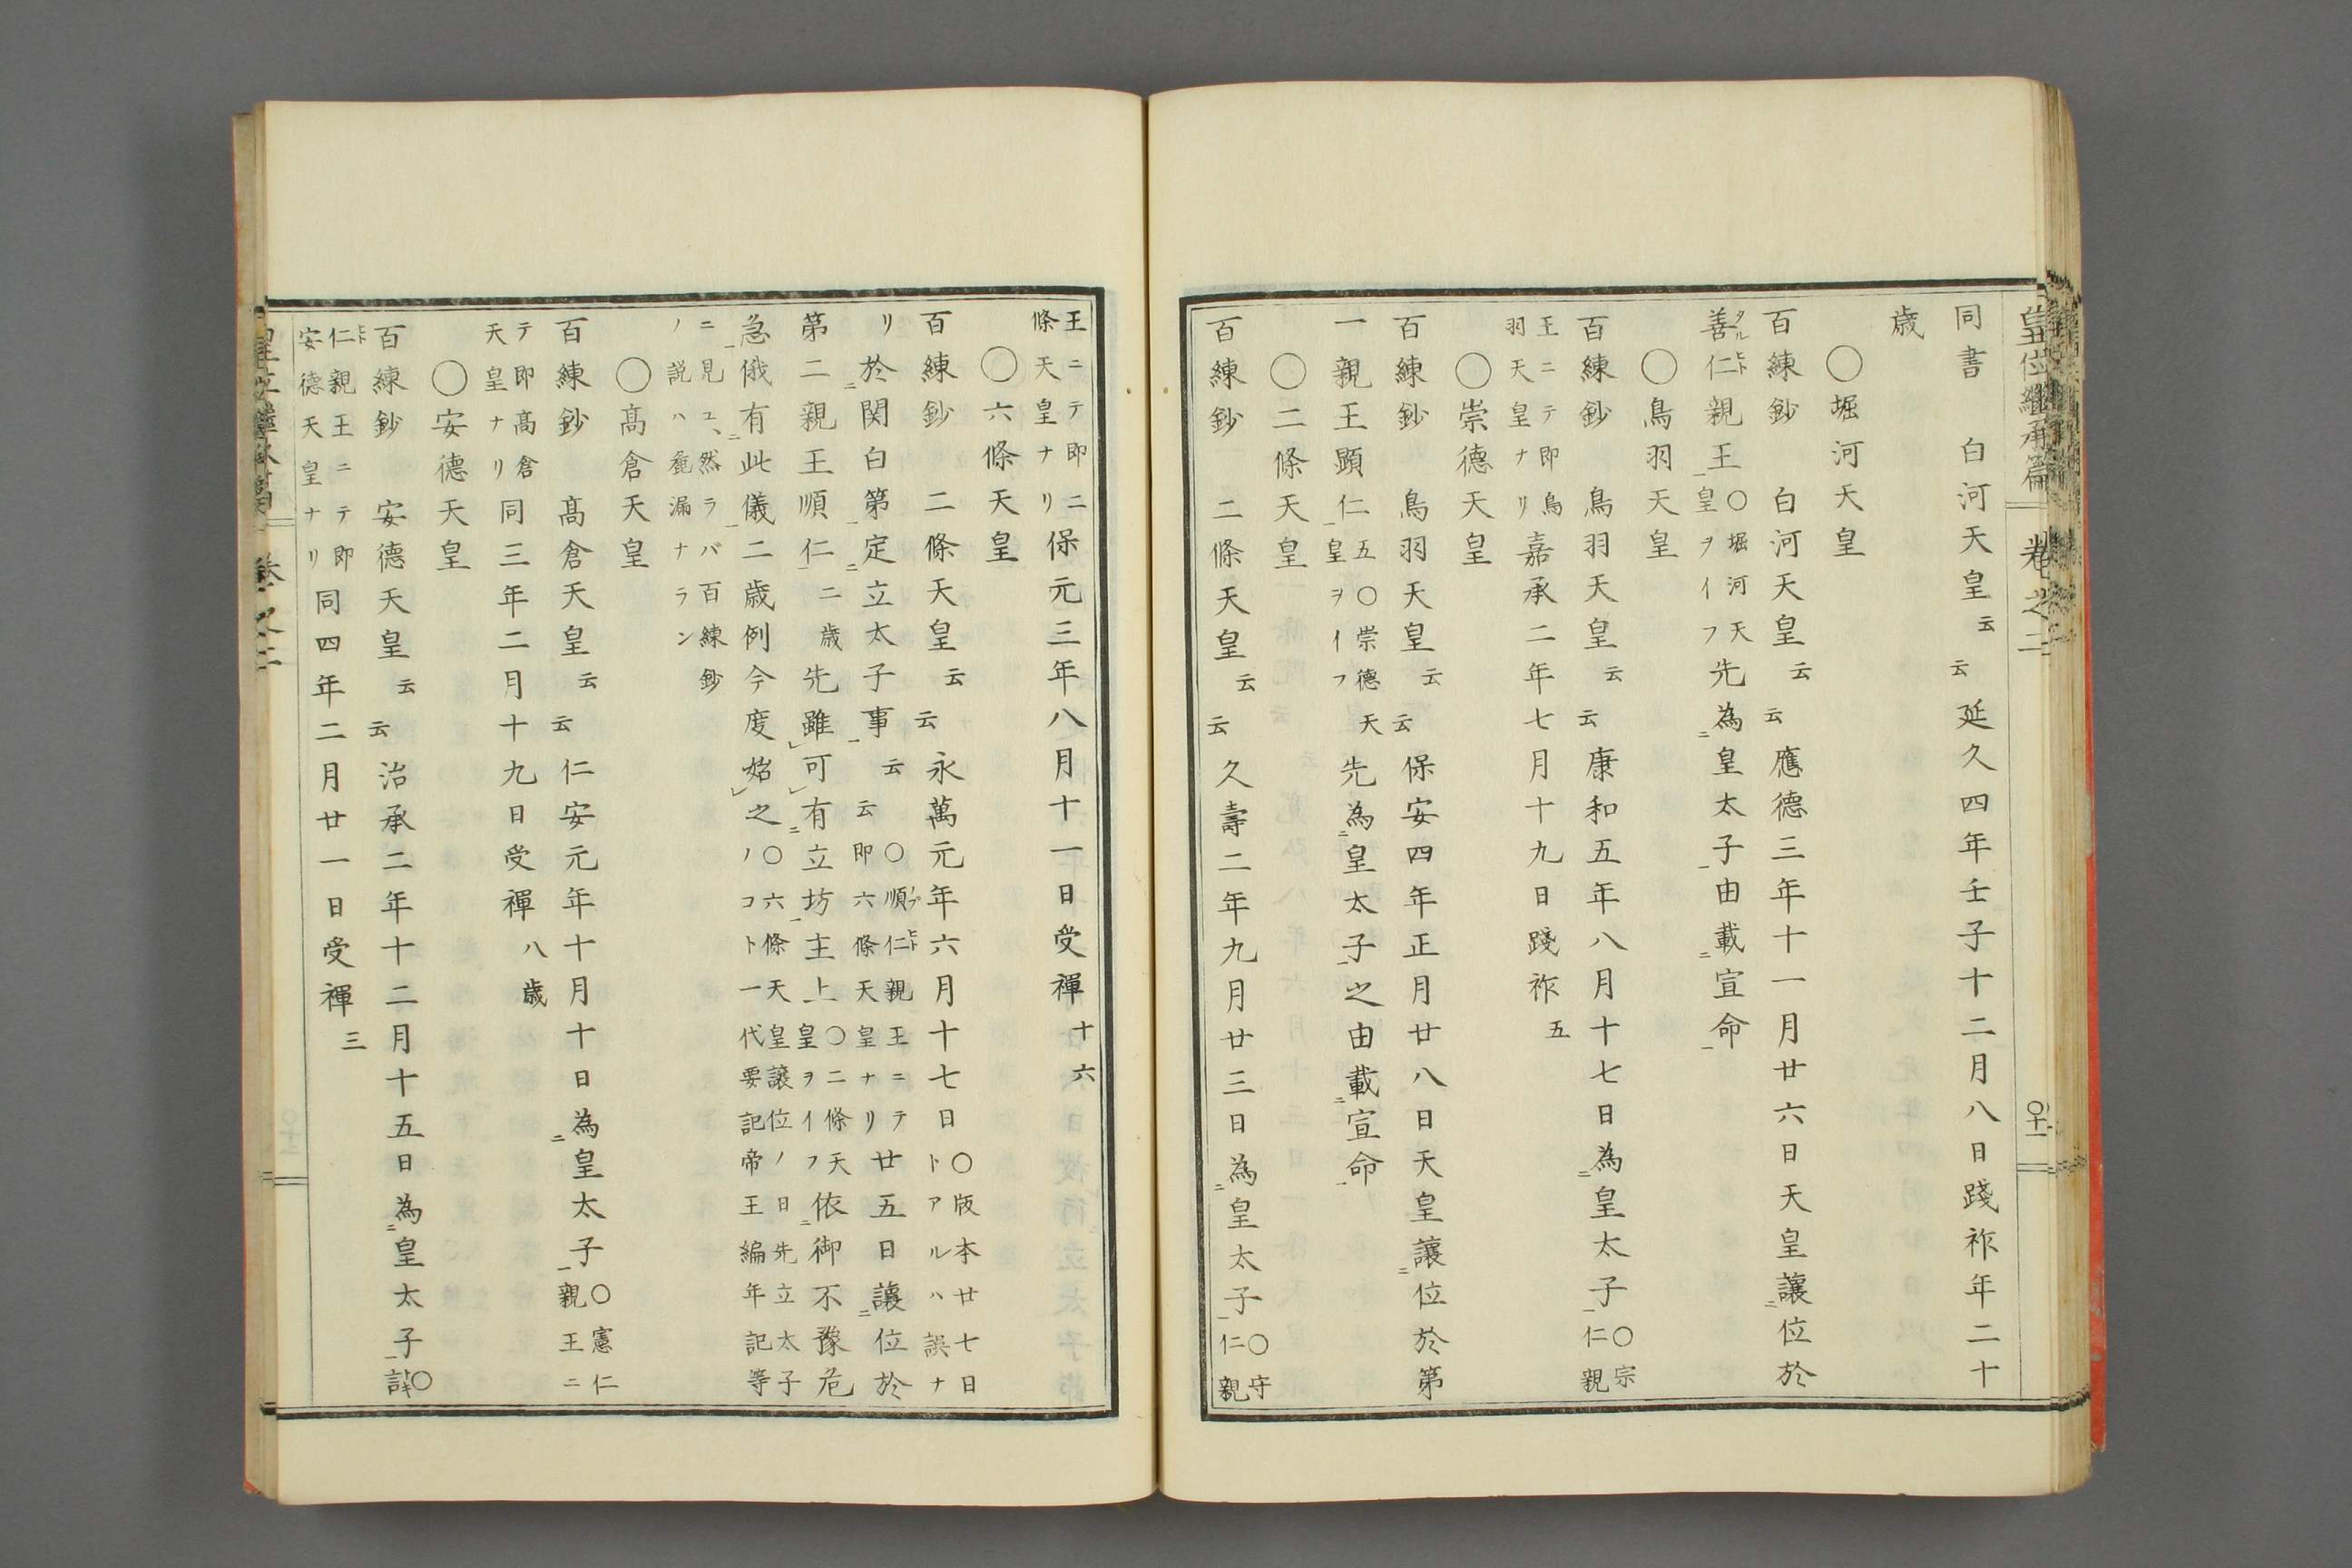 皇位繼承篇 卷之二 〇十一
同書 白河天皇云云延久四年壬子十二月八日踐祚年二十
歲
〇堀河天皇
百練鈔 白河天皇云云應德三年十一月廿六日天皇讓二位於
善タル仁ヒト親王一〇堀河天皇ヲイフ先為二皇太子一由載二宣命一
〇鳥羽天皇
百練鈔 鳥羽天皇云云康和五年八月十七日為二皇太子一〇宗仁親
王ニテ即鳥羽天皇ナリ嘉承二年七月十九日踐祚五
〇崇德天皇
百練鈔 鳥羽天皇云云保安四年正月廿八日天皇讓二位於第
一親王顯仁一五〇崇德天皇ヲイフ先為二皇太子一之由載二宣命一
〇二條天皇
百練鈔 二條天皇云云久壽二年九月廿三日為二皇太子一〇守仁親
王ニテ即二條天皇ナリ保元三年八月十一日受禪十六
〇六條天皇
百練鈔 二條天皇云云永萬元年六月十七日〇版本廿七日トアルハ誤ナ
リ於二関白第一定二立太子事一云云〇順仁ヒト親王ニテ即六條天皇ナリ廿五日讓二位於
第二親王順仁一二歲先雖レ可レ有二立坊一主上〇二條天皇ヲイフ依二御不豫危
急一俄有二此儀一二歲例今度始レ之〇六條天皇讓位ノ日先立太子ノコト一代要記帝王編年記等
ニ見ユ、然ラバ百練鈔ノ説ハ竄漏ナラン
〇髙倉天皇
百練鈔 髙倉天皇云云仁安元年十月十日為二皇太子一〇憲仁親王ニ
テ即髙倉天皇ナリ同三年二月十九日受禪八歲
〇安德天皇
百練鈔 安德天皇云云治承二年十二月十五日為二皇太子一〇言
仁ヒト親王ニテ即安德天皇ナリ同四年二月廿一日受禪三